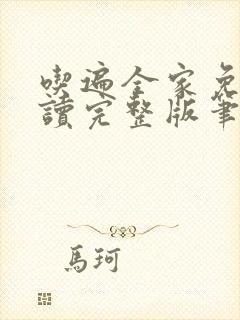 喫遍全家免
讀完整版筆
馬珂